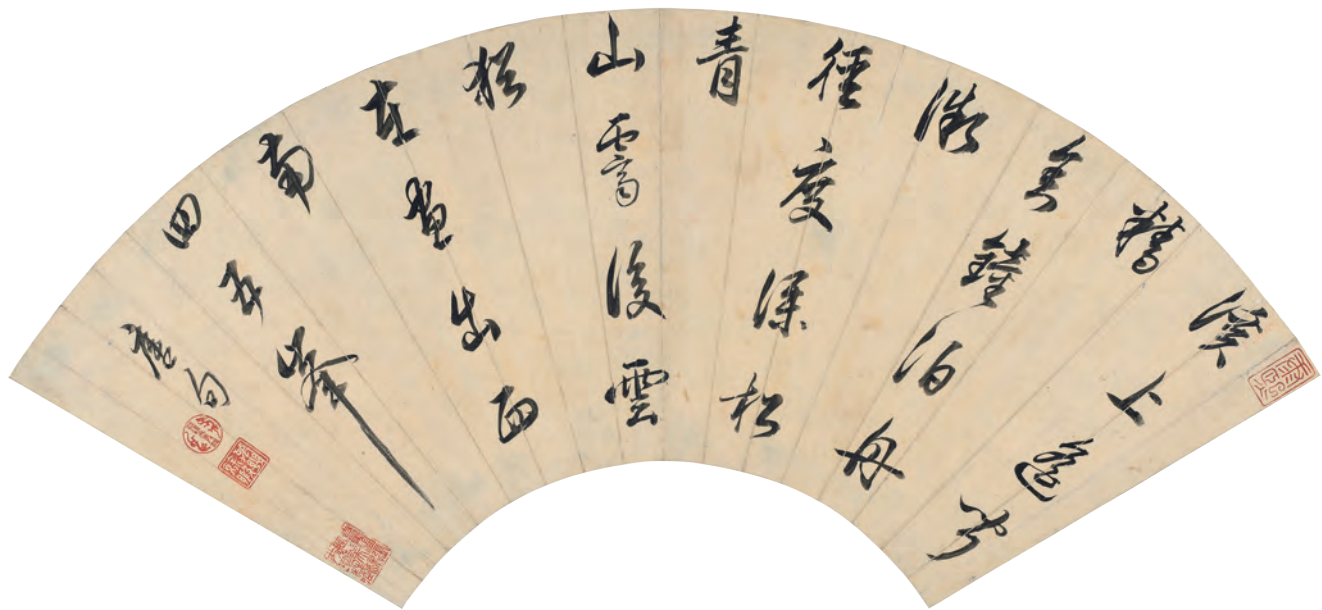 溪上遙聞
精
舍鐘泊舟
微
徑度深松
青
山霽後雲
猶
在畫出西
南
四五峰
唐句